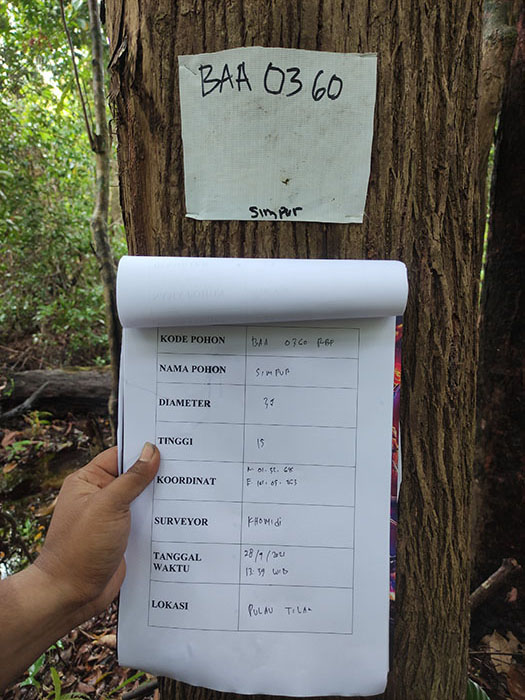 BAA 0360
Simpur
KODE POHON BAA 0360 RBP
NAMA POHON SIMPUR
DIAMETER 35
TINGGI 15
KOORDINAT N 01.52.
E 101.05.
SURVEYOR KHOMIDI
TANGGAL 28/9/2021
WAKTU 13:39 WIB
LOKASI PULAU